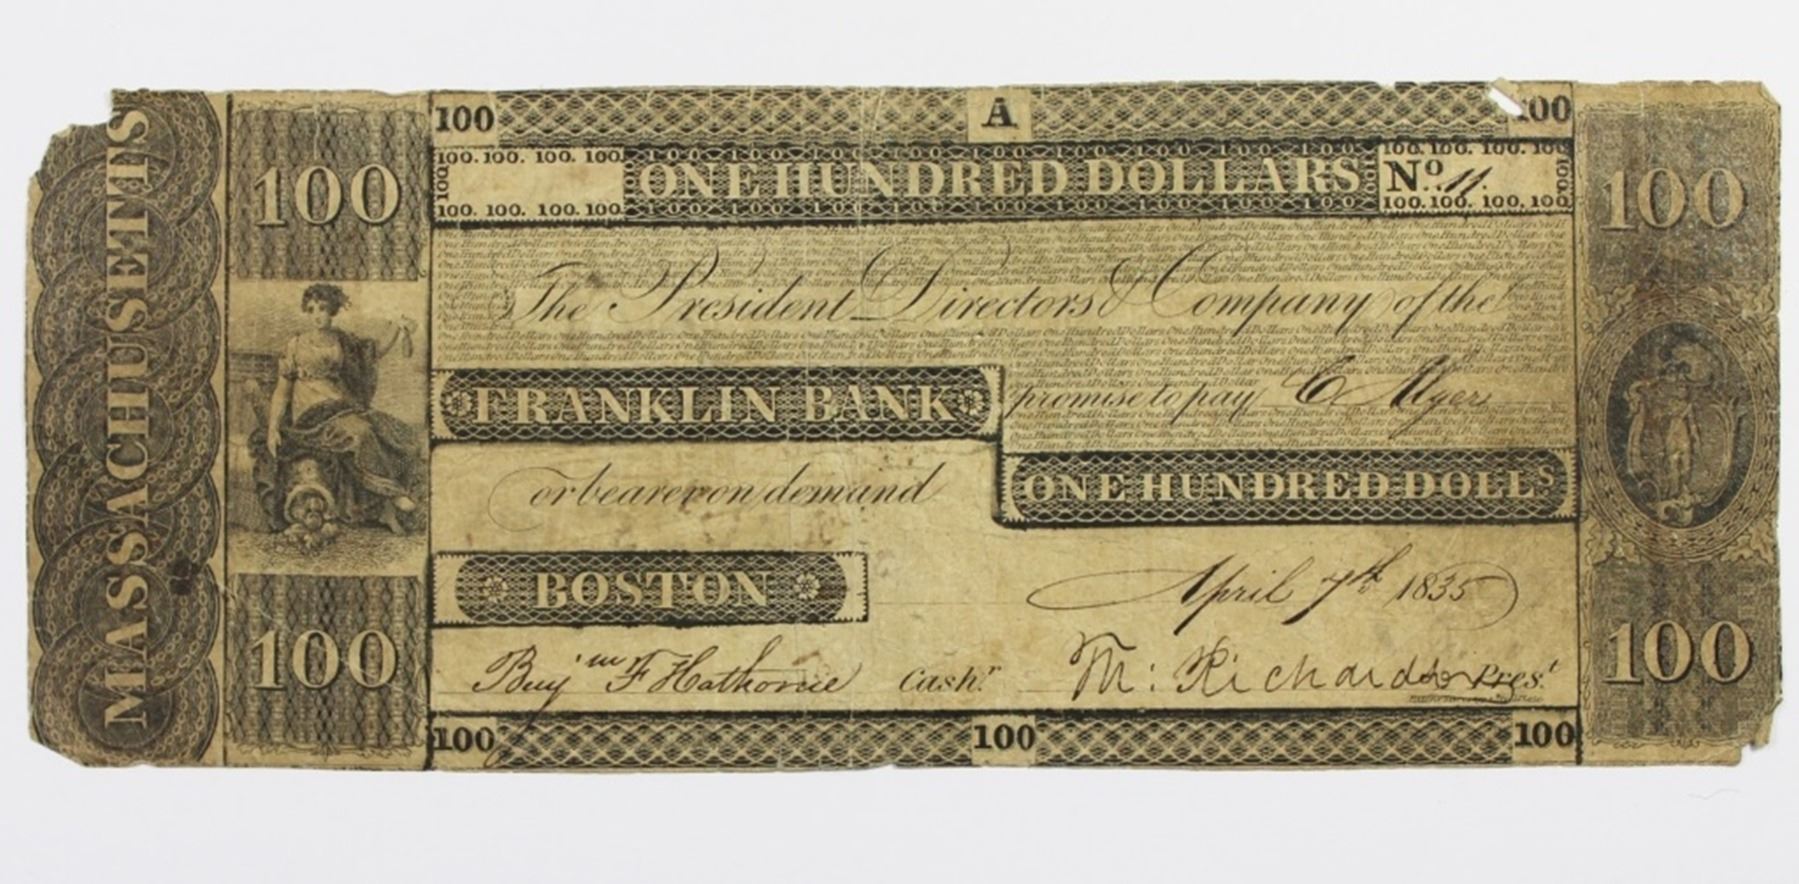 MASSACHUSETTS
100
100
100 A 100
100. 100. 100. 100.
100
100. 100. 100. 100.
ONE HUNDRED DOLLARS
100. 100. 100. 100
No. 11.
100. 100. 100. 100
The President Directors & Company of the
FRANKLIN BANK
promise to pay C Myers
or bearer on demand
ONE HUNDRED DOLLS
BOSTON
April 7th 1835
Benj'm F Hathorne Cashr.
M: Richardson Prest.
100 100 100
100
100